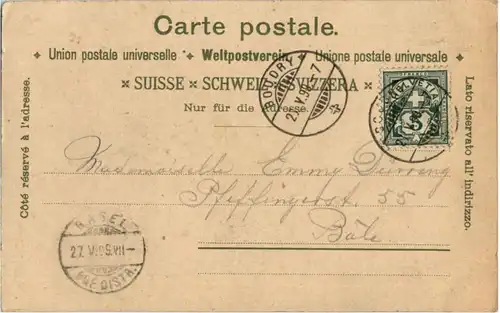 Carte postale.
Union postale universelle Weltpostverein Unione postale universale
SUISSE SCHWEIZ SVIZZERA
Nur für die Adresse.
Côté réservé à l'adresse.
Lato riservato all' indirizzo.
BOUDRY
27.V.99.-7
HELVETIA
FRANCO
5
Mademoiselle Emmy
Pfeffingerst. 55
Bâle
BASEL
27.V.99.VII-